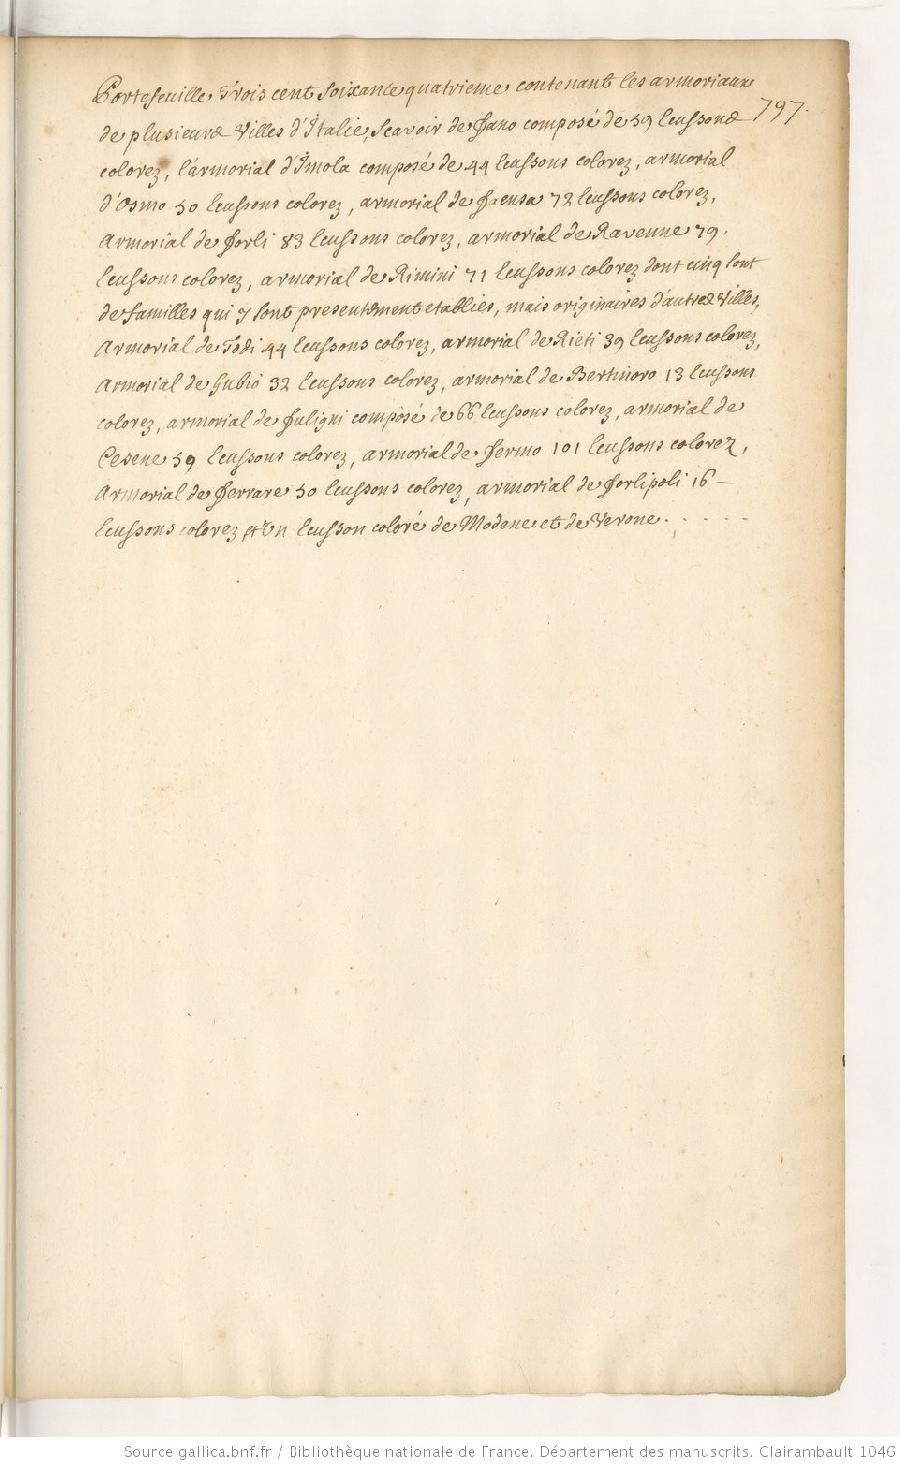 Portefeuille Trois cent soixante quatrieme contenant les armoriaux
797.
de plusieurs Villes d'Italie, Scavoir de Fano composé de 59 Ecussons
colorez, l'armorial d'Imola composé de 44 Ecussons colorez, armorial
d'Osmo 50 Ecussons colorez, armorial de Faensa 72 Ecussons colorez,
Armorial de Forli 83 Ecussons colorez, armorial de Ravenne 79.
Ecussons colorez, armorial de Rimini 71 Ecussons colorez dont cinq sont
de familles qui y sont presentement etablies, mais originaires d'autres Villes,
Armorial de Todi 44 Ecussons colorez, armorial de Rieti 39 Ecussons colorez,
Armorial de Gubio 32 Ecussons colorez, armorial de Bertinoro 13 Ecussons
colorez, armorial de Fuligni composé de 66 Ecussons colorez, armorial de
Cesene 59 Ecussons colorez, armorial de Fermo 101 Ecussons colorez,
Armorial de Ferrare 50 Ecussons colorez, armorial de Forlipoli 16 —
Ecussons colorez et Un Ecusson coloré de Modene et de Verone. . . . .
Source gallica.bnf.fr / Bibliothèque nationale de France. Département des manuscrits. Clairambault 1046